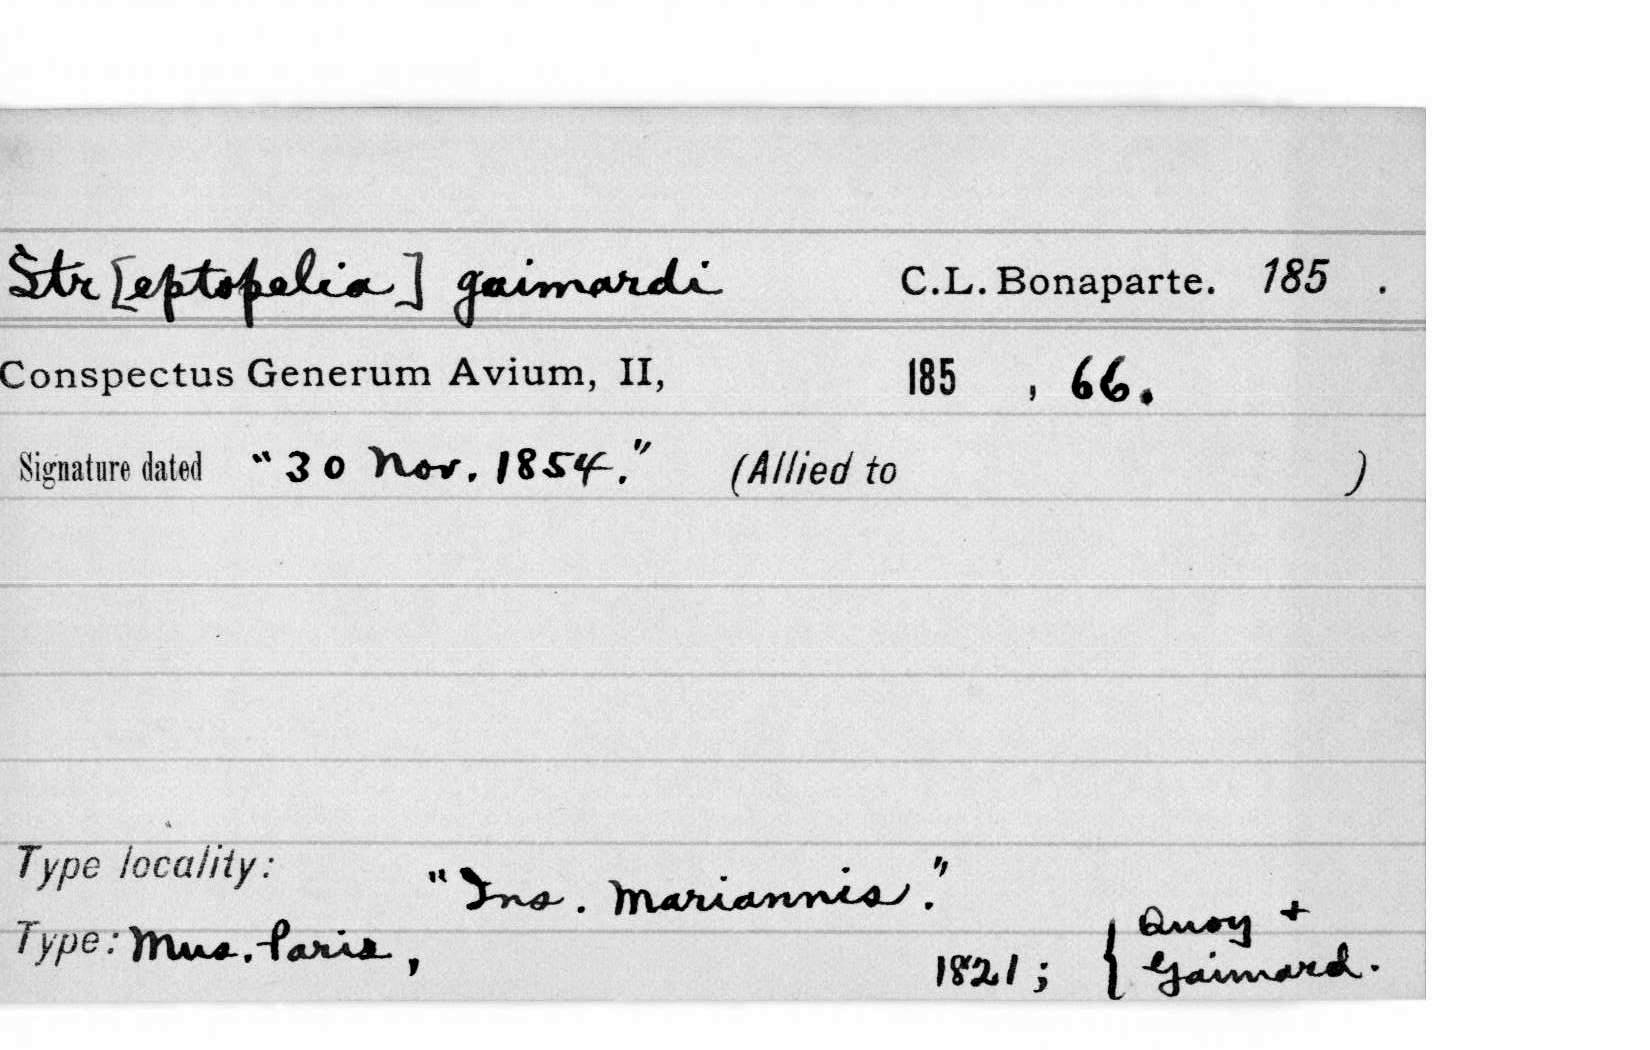 Str[eptopelia] gaimardi C.L. Bonaparte. 185 .
Conspectus Generum Avium, II, 185 , 66.
Signature dated "30 Nov. 1854." (Allied to )
Type locality:
"Ins. Mariannis."
Type: Mus. Paris, 1821; { Quoy +
Gaimard.